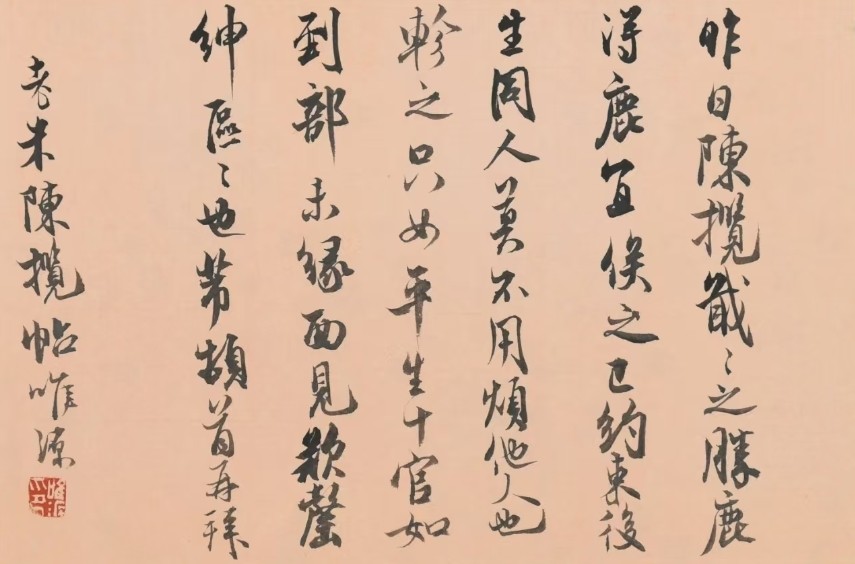 昨日陳攬戢〻之勝鹿
得鹿宜俟之已約束後
生同人莫不用煩他人也
軫之只如平生十官如
到部未緣面見欽罄
紳區〻也芾頓首再拜
老米陳攬帖 唯源